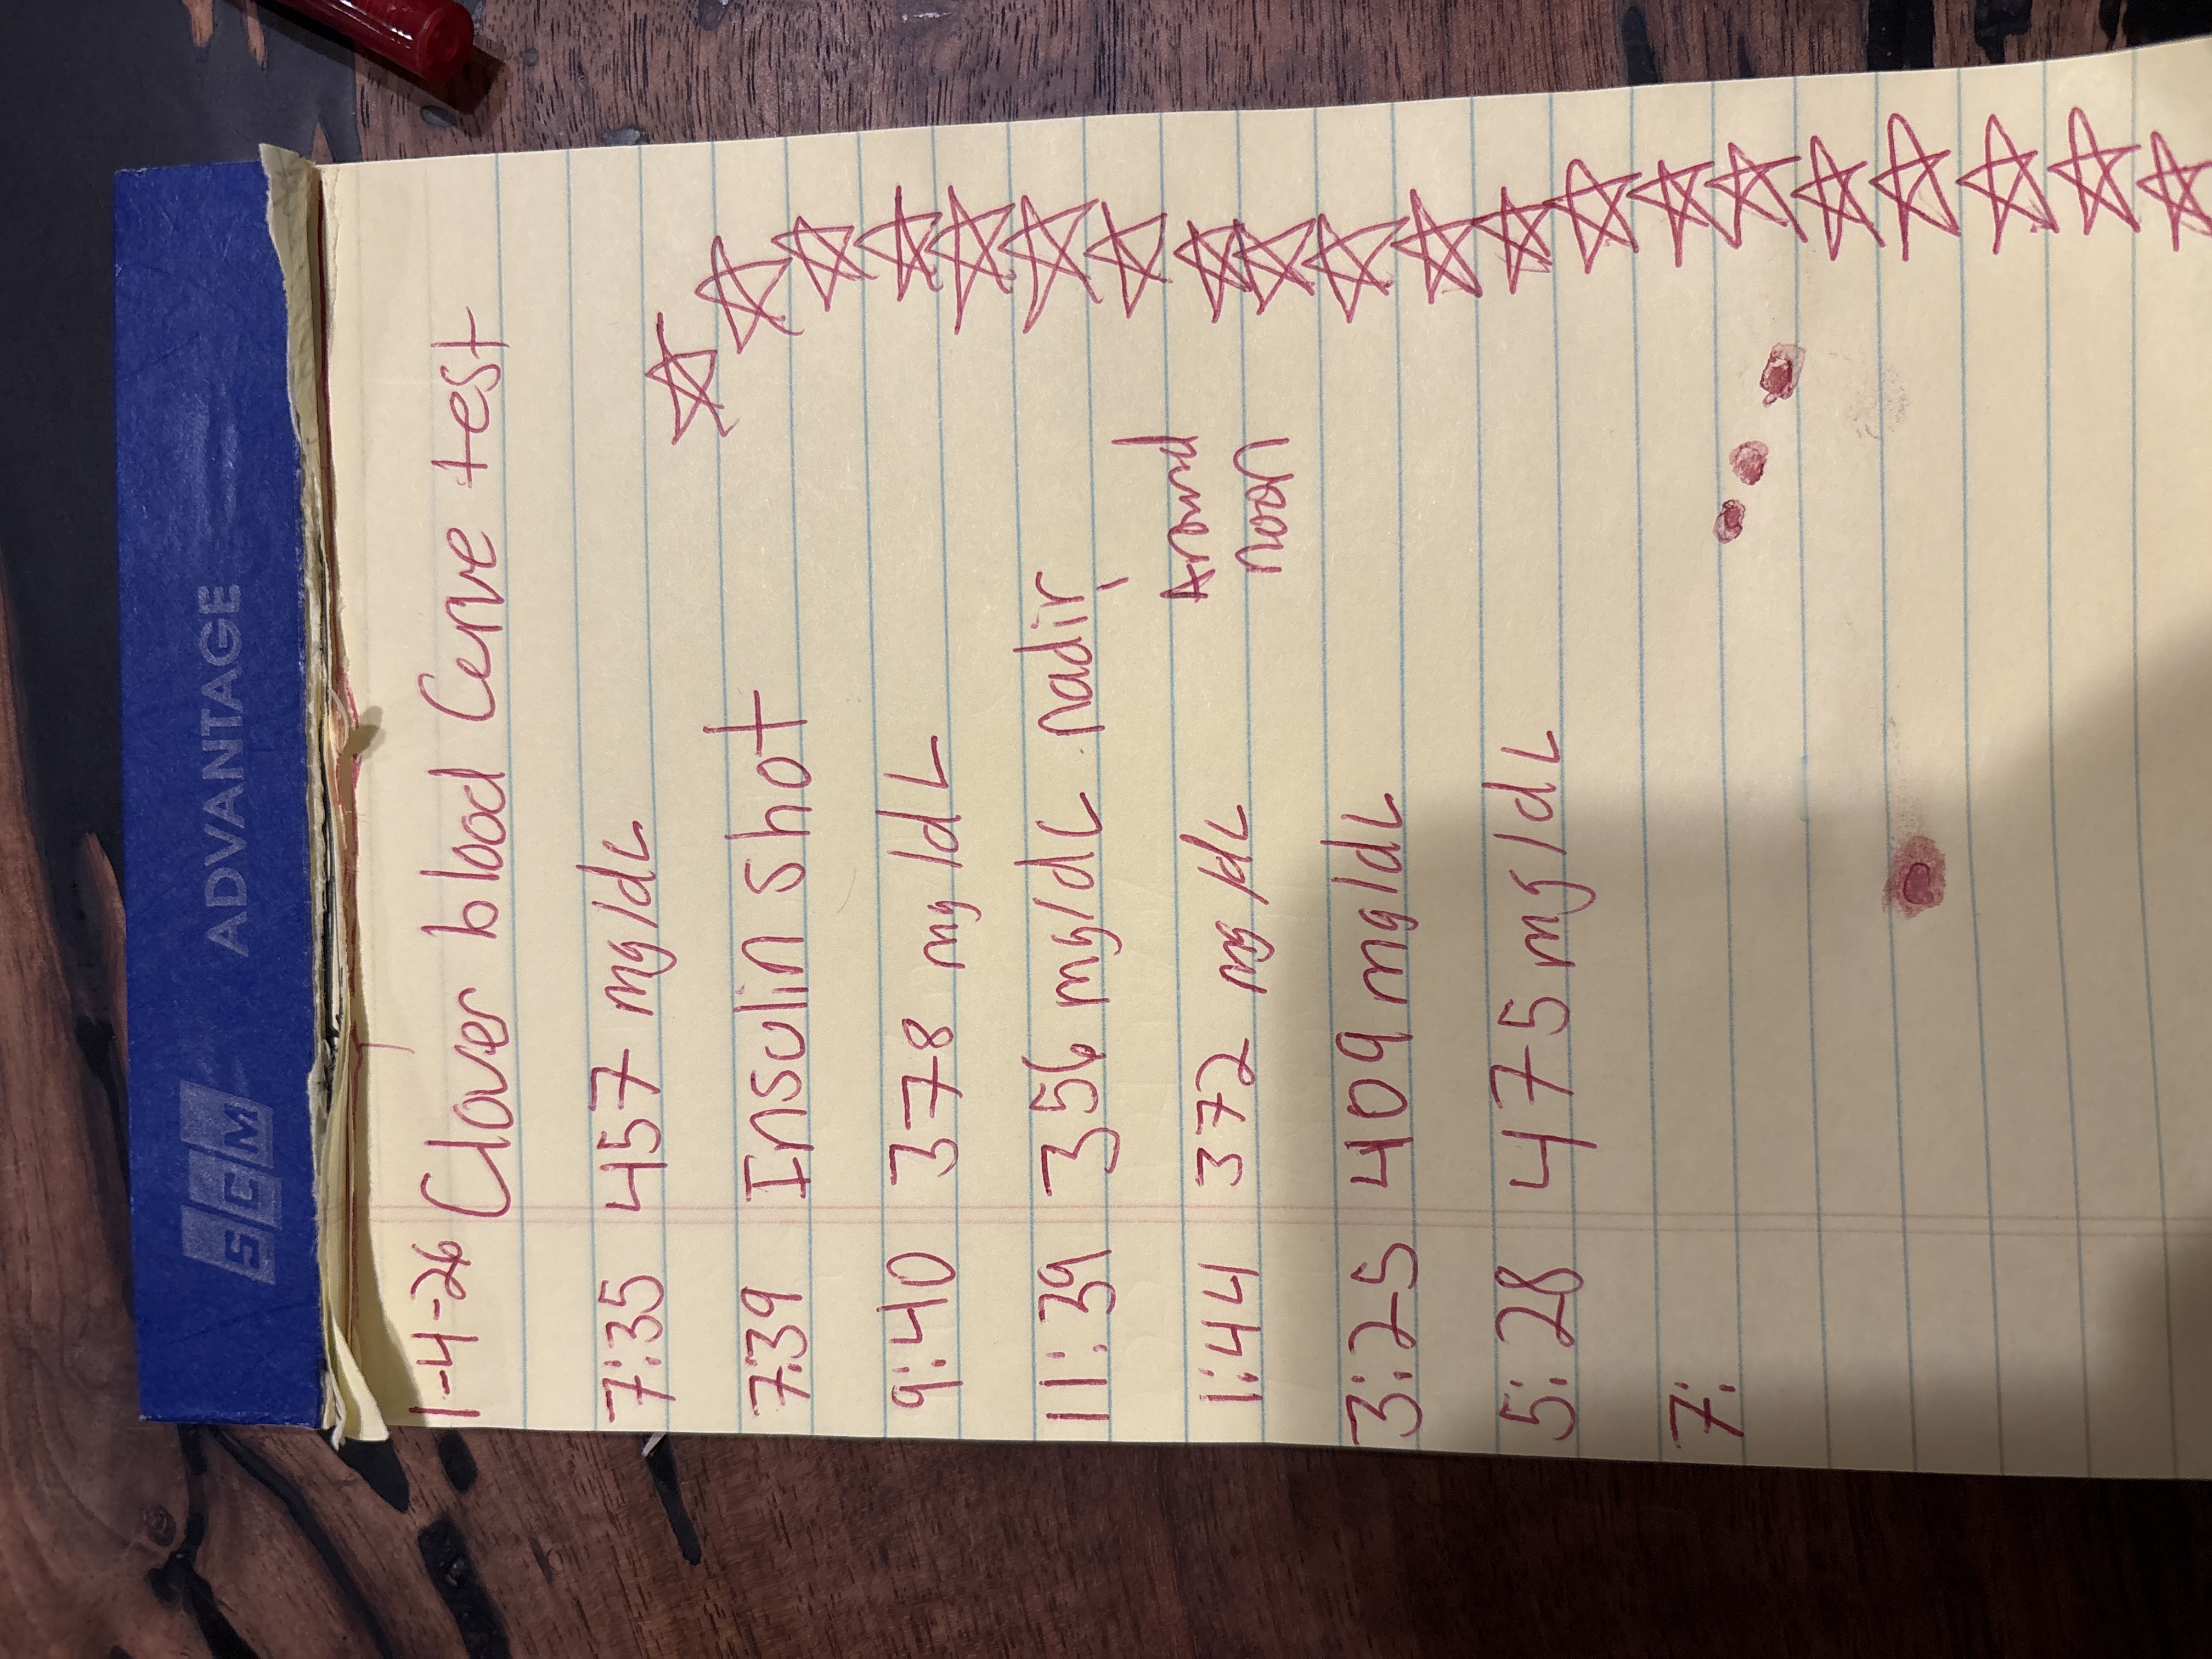 SCM ADVANTAGE
1-4-26 Clover blood Cerve test
7:35 457 mg/dL
7:39 Insulin shot
9:40 378 mg/dL
11:39 356 mg/dL nadir
Around
1:44 372 mg/dL noon
3:25 409 mg/dL
5:28 475 mg/dL
7: